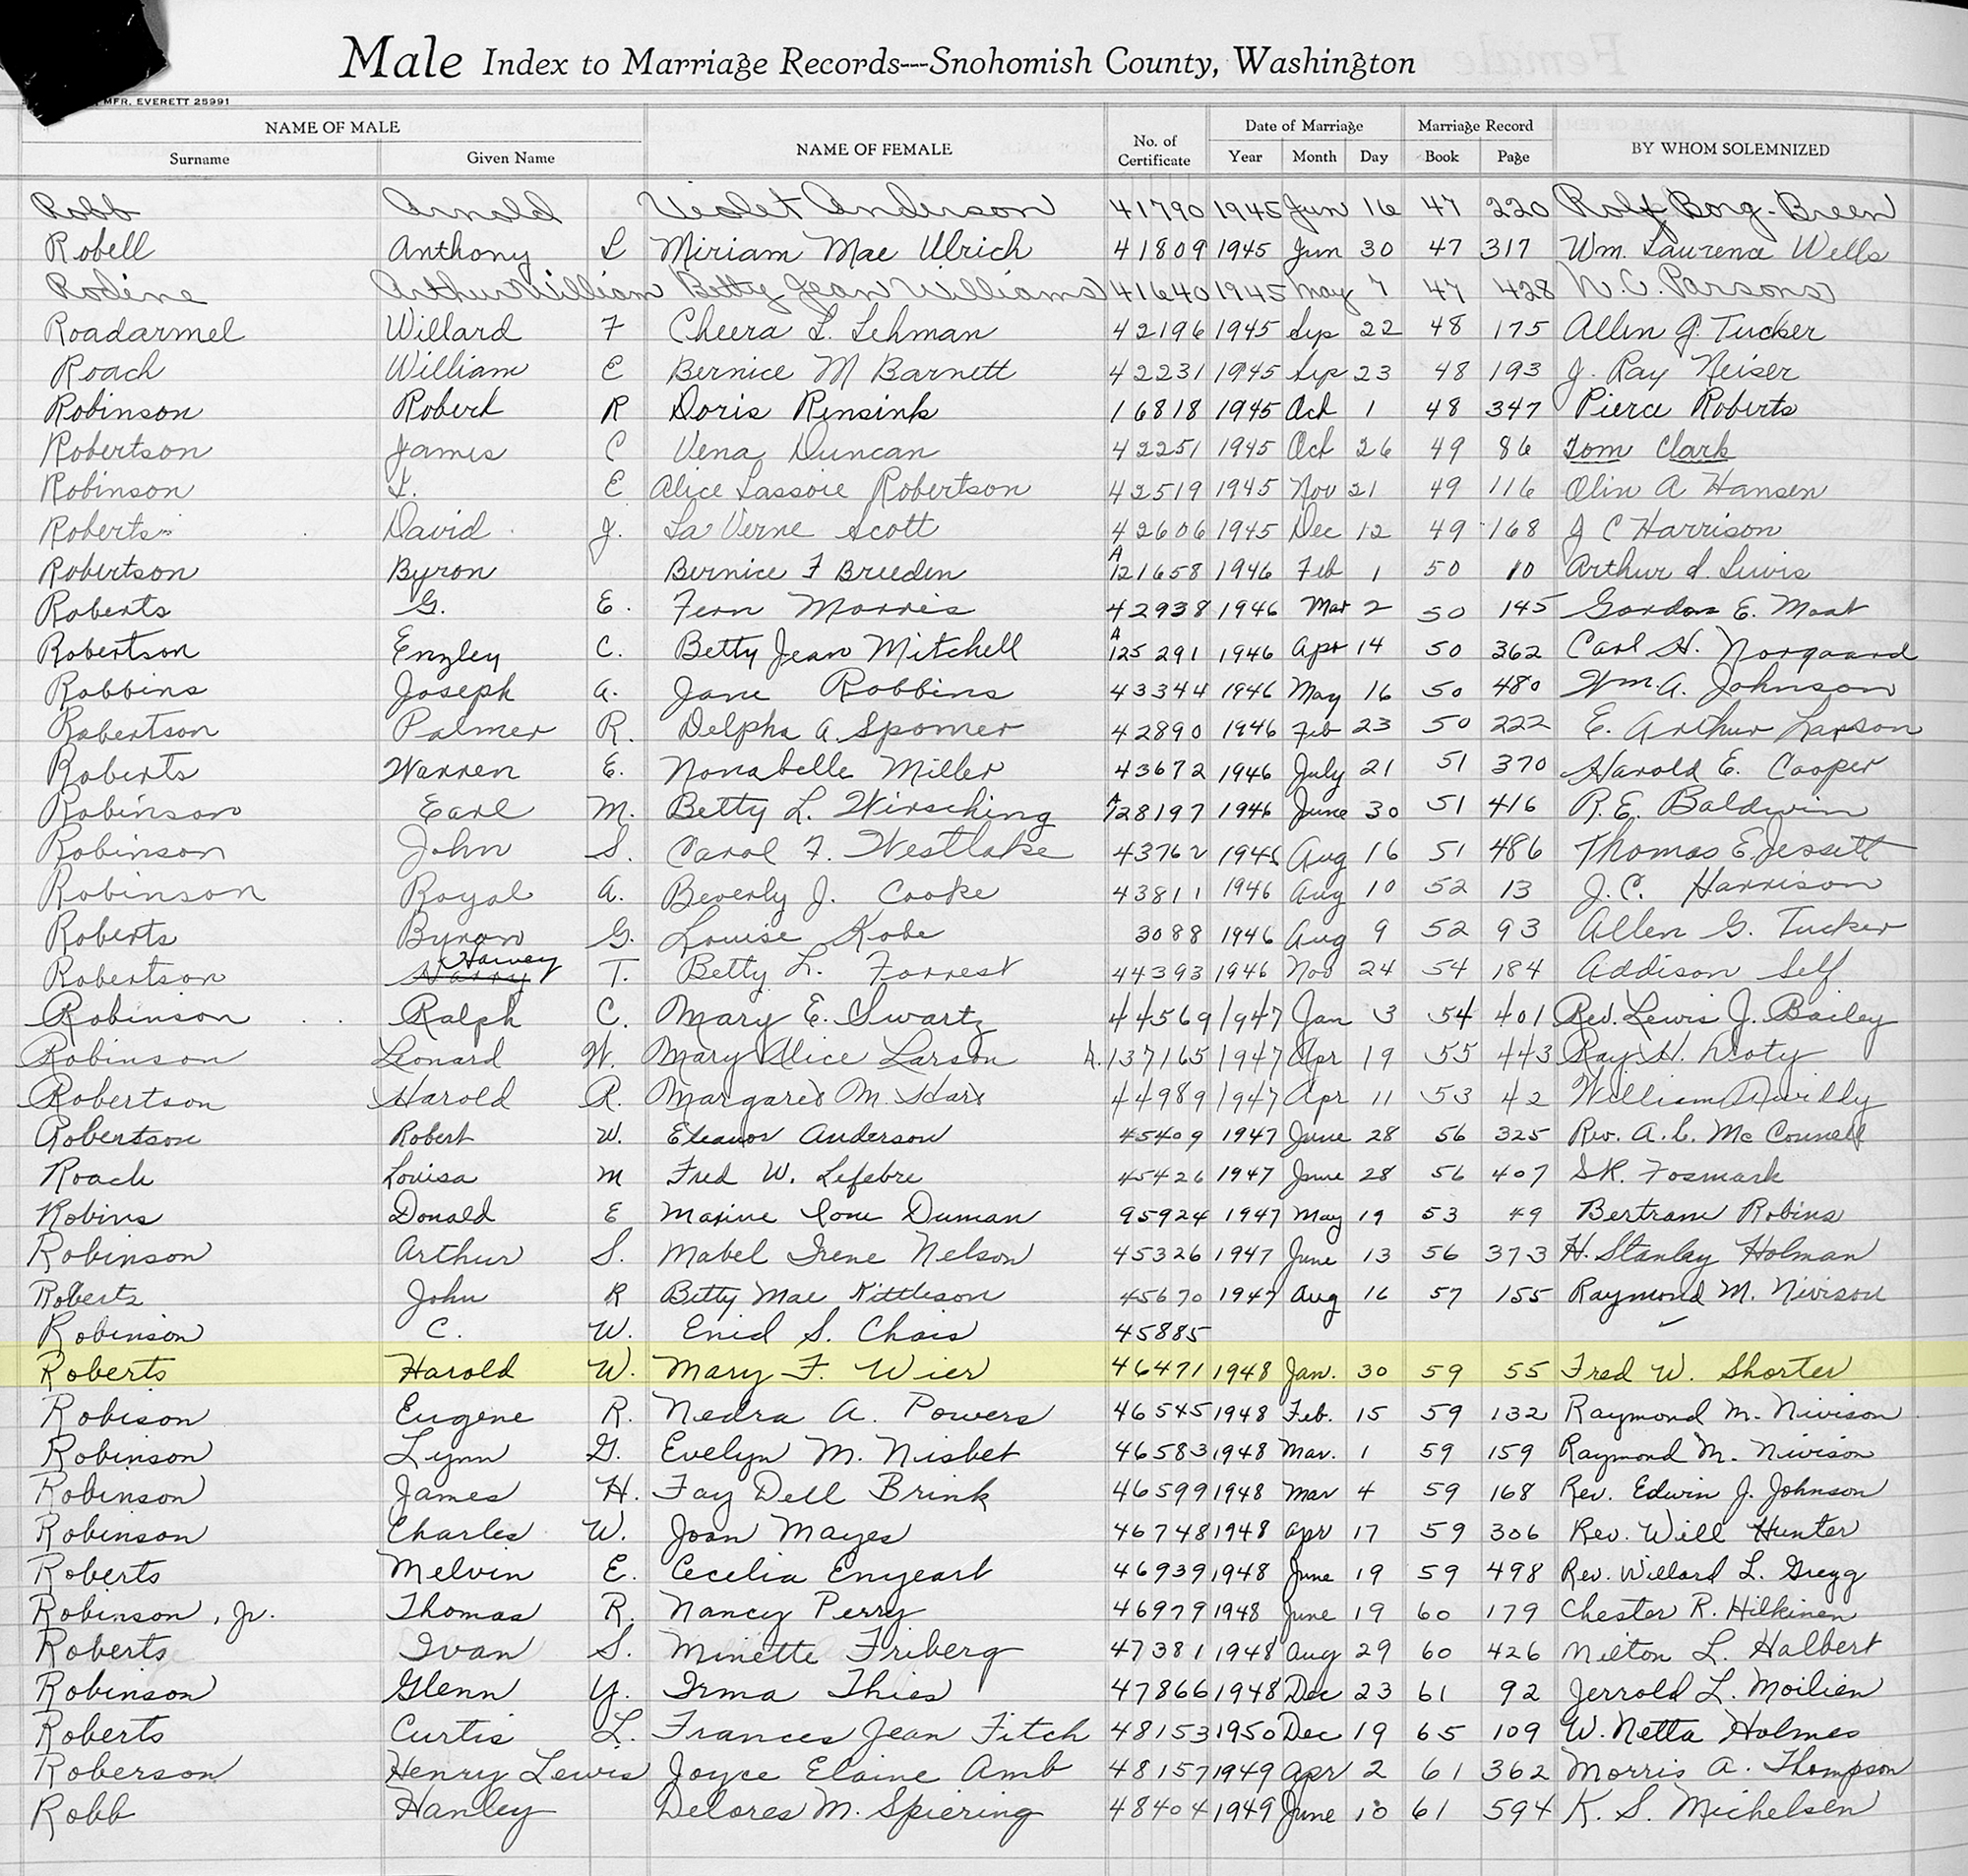 Male Index to Marriage Records---Snohomish County, Washington
MFR. EVERETT 25991
NAME OF MALE NAME OF FEMALE No. of Certificate Date of Marriage Marriage Record BY WHOM SOLEMNIZED
Surname Given Name Year Month Day Book Page
Robb Arnold Violet Anderson 41790 1945 Jun 16 47 220 Rolf Borg-Breen
Robell Anthony L Miriam Mae Ulrich 41809 1945 Jun 30 47 317 Wm. Laurence Wells
Rodine Arthur William Betty Jean Williams 41640 1945 May 7 47 428 N.C. Parsons
Roadarmel Willard F Cheera L. Lehman 42196 1945 Sep 22 48 175 Allen G. Tucker
Roach William E Bernice M Barnett 42231 1945 Sep 23 48 193 J. Ray Neiser
Robinson Robert R Doris Rensink 16818 1945 Oct 1 48 347 Pierce Roberts
Robertson James C Vena Duncan 42251 1945 Oct 26 49 86 Tom Clark
Robinson L. E Alice Lassoie Robertson 42519 1945 Nov 21 49 116 Olin A Hansen
Roberts David J. La Verne Scott 42606 1945 Dec 12 49 168 J C Harrison
Robertson Byron Bernice F Breeden A 121658 1946 Feb 1 50 10 Arthur S. Lewis
Roberts G. E. Fern Morris 42938 1946 Mar 2 50 145 Gordon E. Moat
Robertson Enzley C. Betty Jean Mitchell A 125291 1946 Apr 14 50 362 Carl H. Norgaard
Robbins Joseph A. Jane Robbins 43344 1946 May 16 50 480 Wm. A. Johnson
Robertson Palmer R. Delpha A. Spomer 42890 1946 Feb 23 50 222 E. Arthur Larson
Roberts Warren E. Nonabelle Miller 43672 1946 July 21 51 370 Harold E. Cooper
Robinson Earl M. Betty L. Wirsching A 128197 1946 June 30 51 416 R.E. Baldwin
Robinson John S. Carol F. Westlake 43762 1946 Aug 16 51 486 Thomas E. Jessett
Robinson Royal A. Beverly J. Cooke 43811 1946 Aug 10 52 13 J.C. Harrison
Roberts Byron G. Louise Kobe 3088 1946 Aug 9 52 93 Allen G. Tucker
Robertson Harry Harvey T. Betty L. Forrest 44393 1946 Nov 24 54 184 Addison Self
Robinson Ralph C. Mary E. Swartz 44569 1947 Jan 3 54 401 Rev. Lewis J. Bailey
Robinson Leonard W. Mary Alice Larson A.137165 1947 Apr 19 55 443 Ray H. Doty
Robertson Harold R. Margaret M. Hart 44989 1947 Apr 11 53 42 William
Robertson Robert W. Eleanor Anderson 45409 1947 June 28 56 325 Rev. A.L. McConnell
Roach Louisa M Fred W. Lefebre 45426 1947 June 28 56 407 S.R. Fosmark
Robins Donald E Maxine Ione Duman 95924 1947 May 19 53 49 Bertram Robins
Robinson Arthur S. Mabel Irene Nelson 45326 1947 June 13 56 373 H. Stanley Holman
Roberts John R Betty Mae Kittleson 45670 1947 Aug 16 57 155 Raymond M. Nivison
Robinson C. W. Enid S. Chais 45885
Roberts Harold W. Mary F. Wier 46471 1948 Jan. 30 59 55 Fred W. Shorter
Robison Eugene R. Nedra A. Powers 46545 1948 Feb. 15 59 132 Raymond M. Nivison
Robinson Lynn G. Evelyn M. Nisbet 46583 1948 Mar. 1 59 159 Raymond M. Nivison
Robinson James H. Fay Dell Brink 46599 1948 Mar 4 59 168 Rev. Edwin J. Johnson
Robinson Charles W. Joan Mayes 46748 1948 Apr 17 59 306 Rev. Will Hunter
Roberts Melvin E. Cecelia Enyeart 46939 1948 June 19 59 498 Rev. Willard L. Gregg
Robinson, Jr. Thomas R. Nancy Perry 46979 1948 June 19 60 179 Chester R. Hilkinen
Roberts Ivan S. Minette Friberg 47381 1948 Aug 29 60 426 Milton L. Halbert
Robinson Glenn Y. Irma Thies 47866 1948 Dec 23 61 92 Jerrold L. Moilien
Roberts Curtis L. Frances Jean Fitch 48153 1950 Dec 19 65 109 W. Netta Holmes
Roberson Henry Lewis Joyce Elaine Amb 48157 1949 Apr 2 61 362 Morris A. Thompson
Robb Hanley Delores M. Spiering 48404 1949 June 10 61 594 K. S. Michelsen